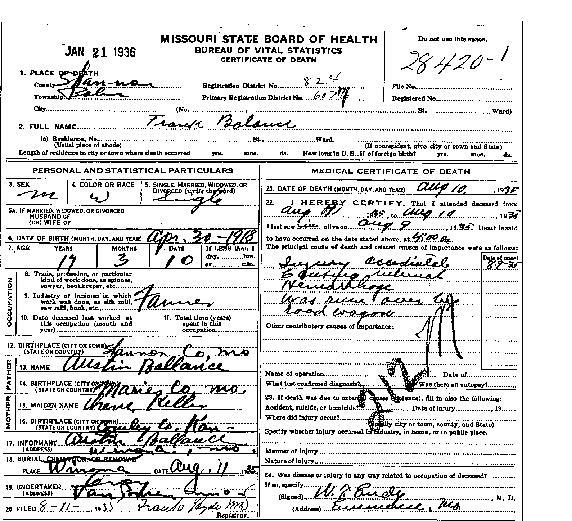 JAN 21 1936
MISSOURI STATE BOARD OF HEALTH
BUREAU OF VITAL STATISTICS
CERTIFICATE OF DEATH
Do not use this space.
28420-1
1. PLACE OF DEATH
County Shannon
Township
City (No. St. Ward)
Registration District No. 824
Primary Registration District No.
File No.
Registered No.
2. FULL NAME Frank Balance
(a) Residence, No. St. Ward.
(Usual place of abode) (If nonresident, give city or town and State)
Length of residence in city or town where death occurred yrs. mos. ds. How long in U. S., if of foreign birth? yrs. mos. ds.
PERSONAL AND STATISTICAL PARTICULARS
3. SEX M
4. COLOR OR RACE W
5. SINGLE, MARRIED, WIDOWED, OR DIVORCED (write the word) Single
5a. IF MARRIED, WIDOWED, OR DIVORCED
HUSBAND OF
(OR) WIFE OF
6. DATE OF BIRTH (MONTH, DAY, AND YEAR) Apr. 30-1918
7. AGE YEARS 17 MONTHS 3 DAYS 10
OCCUPATION
8. Trade, profession, or particular kind of work done, as spinner, sawyer, bookkeeper, etc.
9. Industry or business in which work was done, as silk mill, saw mill, bank, etc. Farmer
10. Date deceased last worked at this occupation (month and year)
11. Total time (years) spent in this occupation
12. BIRTHPLACE (CITY OR TOWN) (STATE OR COUNTRY) Shannon Co, Mo
FATHER
13. NAME Austin Ballance
14. BIRTHPLACE (CITY OR TOWN) (STATE OR COUNTRY) Maries Co, Mo.
MOTHER
15. MAIDEN NAME Keller
16. BIRTHPLACE (CITY OR TOWN) (STATE OR COUNTRY) Cowley Co Kan
17. INFORMANT Austin Ballance
(ADDRESS) Winona, Mo
18. BURIAL, CREMATION, OR REMOVAL
PLACE Winona DATE Aug. 11 1935
19. UNDERTAKER
(ADDRESS)
20. FILED 8-11-1935
Registrar.
MEDICAL CERTIFICATE OF DEATH
21. DATE OF DEATH (MONTH, DAY, AND YEAR) Aug 10, 1935
22. I HEREBY CERTIFY, That I attended deceased from
Aug 1935, to Aug 10 1935
I last saw alive on Aug 9 1935 Death is said
to have occurred on the date stated above, at
The principal cause of death and related causes of importance were as follows:
Date of onset
Injury accidental
Causing internal
Hemorrhage
Was run over by
road wagon
Other contributory causes of importance:
212 M
Name of operation Date of
What test confirmed diagnosis? Was there an autopsy?
23. If death was due to external causes (violence), fill in also the following:
Accident, suicide, or homicide? Date of injury 19
Where did injury occur?
(Specify city or town, county, and State)
Specify whether injury occurred in industry, in home, or in public place.
Manner of injury
Nature of injury
24. Was disease or injury in any way related to occupation of deceased?
If so, specify
(Signed) M. D.
(Address) Eminence, Mo